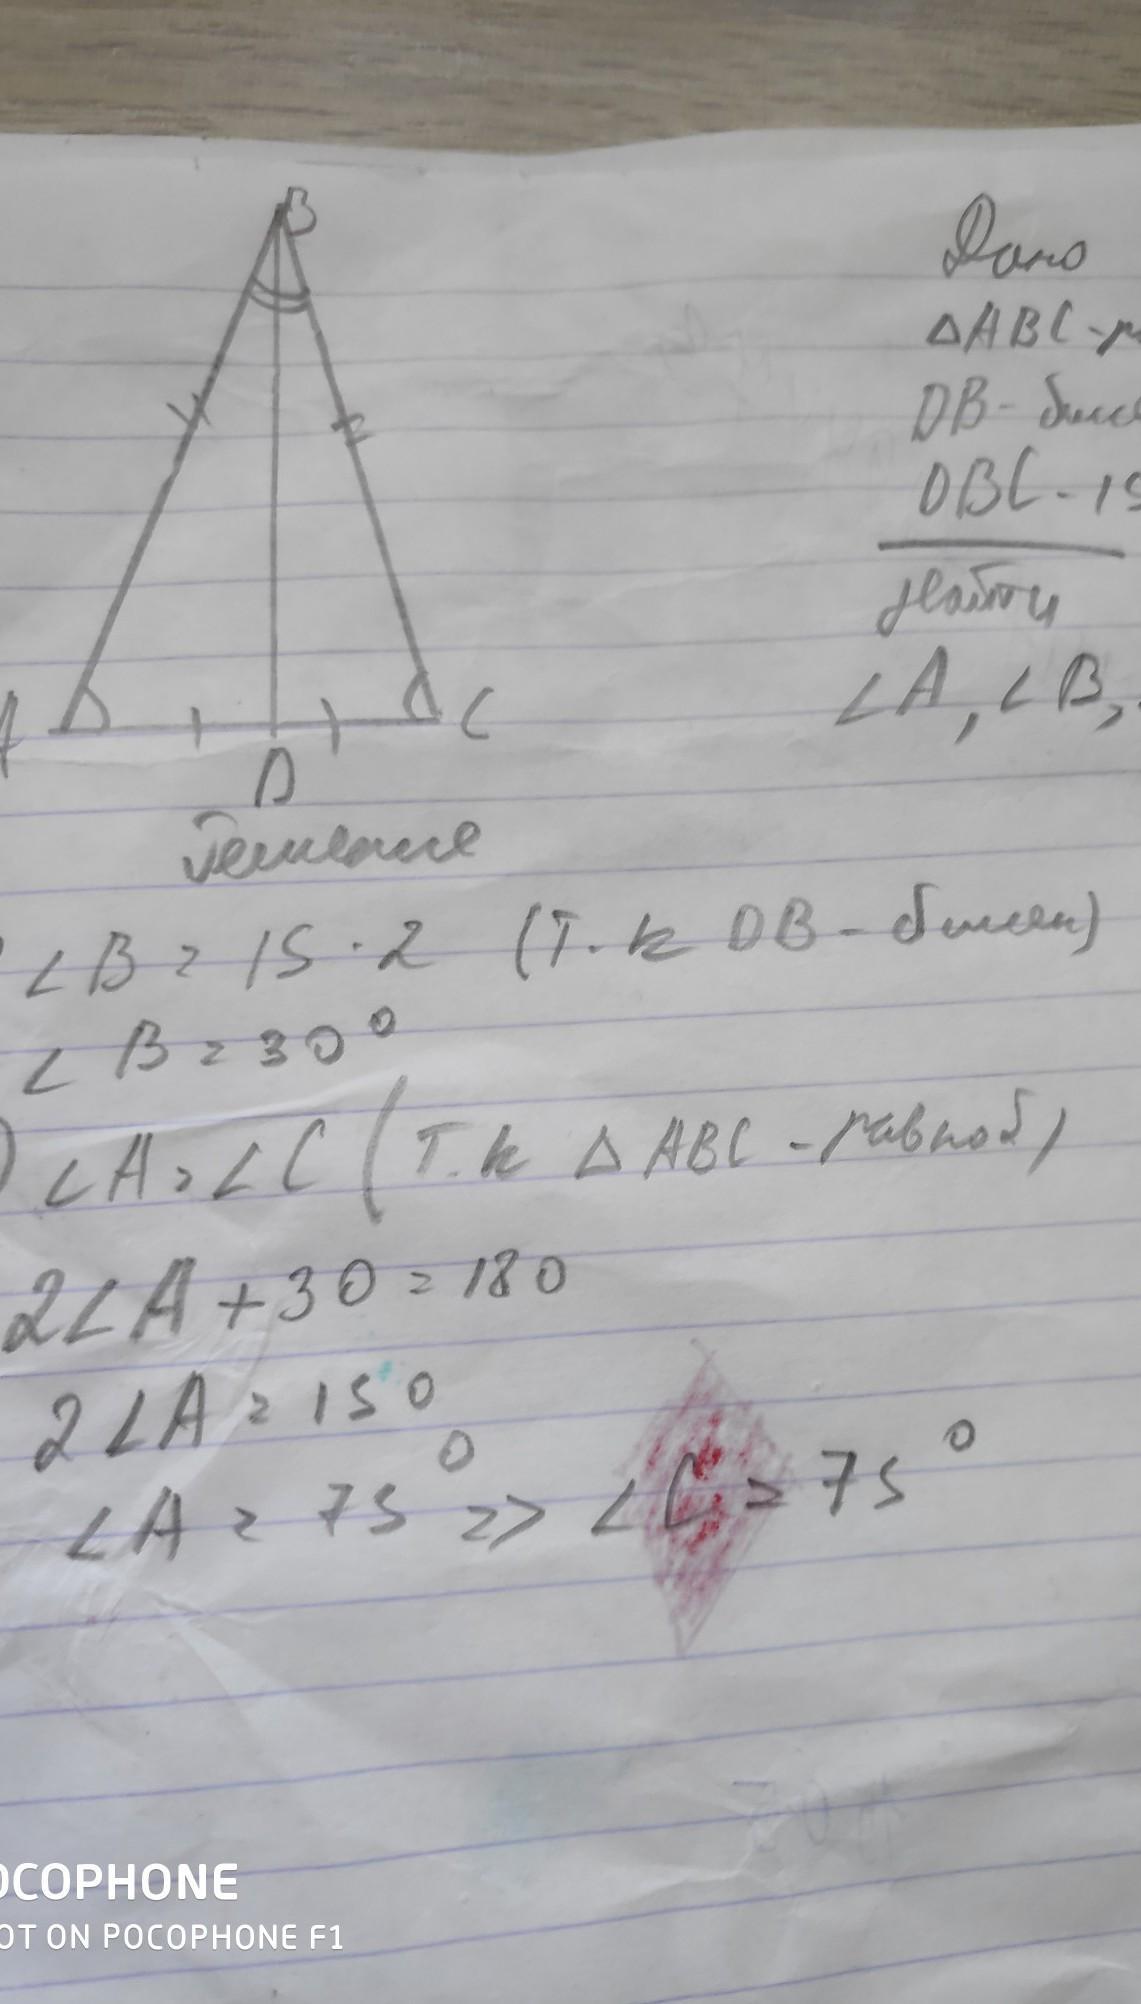 B
A
C
D
Дано
△ABC - р
DB - бисс
DBC - 15
Найти
∠A, ∠B,
Решение
∠B = 15 · 2 (т. к DB - биссек)
∠B = 30°
) ∠A = ∠C (т. к △ABC - равноб)
2∠A + 30 = 180
2∠A = 150
∠A = 75° => ∠C = 75°
OCOPHONE
OT ON POCOPHONE F1